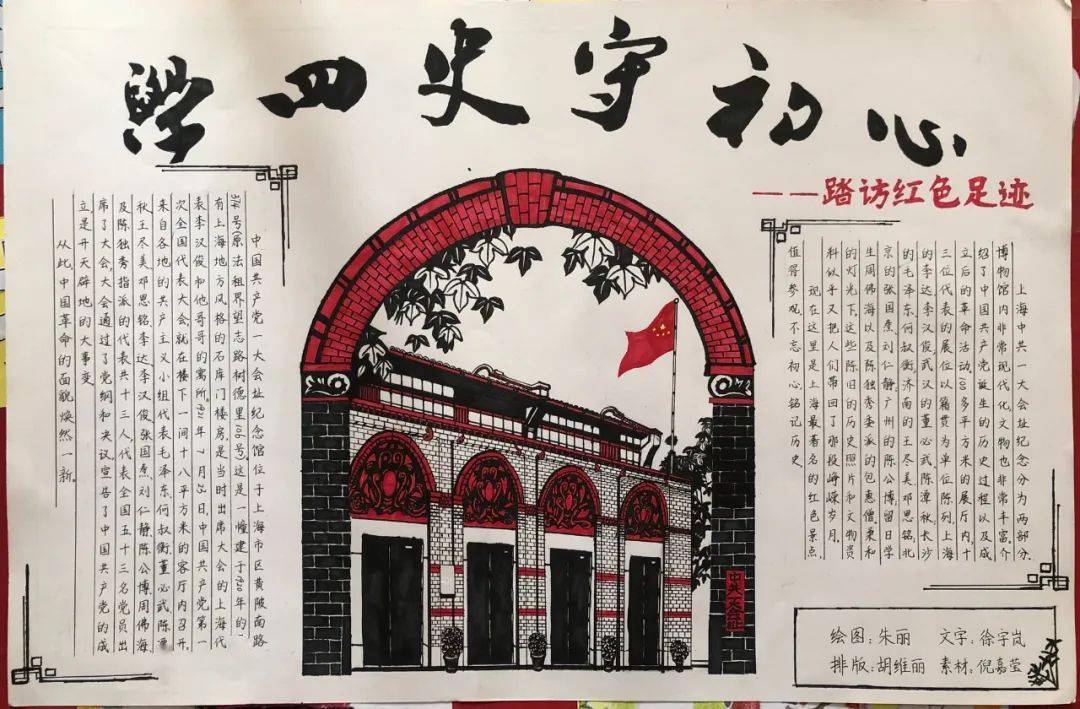 學四史守初心
——踏访红色足迹
中国共产党一大会址纪念馆位于上海市区黄陂南路
374号(原法租界望志路树德里106号),这是一幢建于1920年的,
有上海地方风格的石库门楼房,是当时出席大会的上海代
表李汉俊和他哥哥的寓所,1921年7月23日,中国共产党第一
次全国代表大会,就在楼下一间十八平方米的客厅内召开,
来自各地的共产主义小组代表毛泽东、何叔衡、董必武、陈潭
秋、王尽美、邓恩铭、李达、李汉俊、张国焘、刘仁静、陈公博、周佛海
及陈独秀指派的代表共十三人,代表全国五十三名党员出
席了大会,大会通过了党纲和决议,宣告了中国共产党的成
立,是开天辟地的大事变。
从此,中国革命的面貌焕然一新。
上海中共一大会址纪念分为两部分,
博物馆内非常现代化,文物也非常丰富,介
绍了中国共产党诞生的历史过程以及成
立后的革命活动,100多平方米的展厅内,十
三位代表的展位以籍贯为单位陈列,上海
的李达、李汉俊,武汉的董必武、陈潭秋,长沙
的毛泽东、何叔衡,济南的王尽美、邓恩铭,北
京的张国焘、刘仁静,广州的陈公博,留日学
生周佛海以及陈独秀委派的包惠僧,柔和
的灯光下,这些陈旧的历史照片和文物资
料似乎又把人们带回了那段峥嵘岁月。
现在这里是上海最著名的红色景点,
值得参观,不忘初心,铭记历史。
中共一大会址
绘图:朱丽 文字:徐宇岚
排版:胡维丽 素材:倪嘉莹